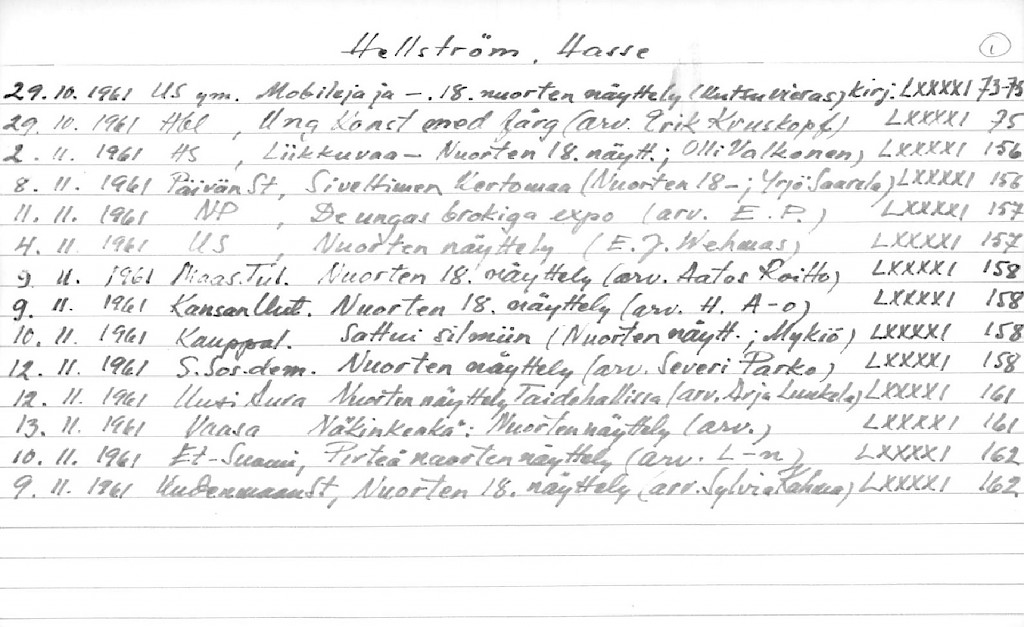 Hellström, Hasse
1
29.10.1961 US ym. Mobileja ja –. 18. nuorten näyttely (Kutsuvieras) kirj. LXXXXI 73-75
29.10.1961 Hbl, Ung Konst med färg (arv. Erik Kruskopf) LXXXXI 75
2.11.1961 HS, Liikkuvaa – Nuorten 18. näytt.; Olli Valkonen) LXXXXI 156
8.11.1961 Päivän St, Siveltimen Kertomaa (Nuorten 18–; Yrjö Saarela) LXXXXI 156
11.11.1961 NP, De ungas brokiga expo (arv. E. P.) LXXXXI 157
4.11.1961 US, Nuorten näyttely (E. J. Vehmas) LXXXXI 157
9.11.1961 Maas.Tul. Nuorten 18. näyttely (arv. Aatos Roitto) LXXXXI 158
9.11.1961 Kansan Uut. Nuorten 18. näyttely (arv. H. A-o) LXXXXI 158
10.11.1961 Kauppal. Sattui silmiin (Nuorten näytt.; Mykiö) LXXXXI 158
12.11.1961 S.Sos.dem. Nuorten näyttely (arv. Severi Parko) LXXXXI 158
12.11.1961 Uusi Aura Nuorten näyttely Taidehallissa (arv. Arja) LXXXXI 161
13.11.1961 Vaasa Näkinkenkä: Nuorten näyttely (arv.) LXXXXI 161
10.11.1961 Et-Suomi, Pirteä nuorten näyttely (arv. L-n) LXXXXI 162
9.11.1961 Uudenmaan St, Nuorten 18. näyttely (arv. Sylvia Kahma) LXXXXI 162